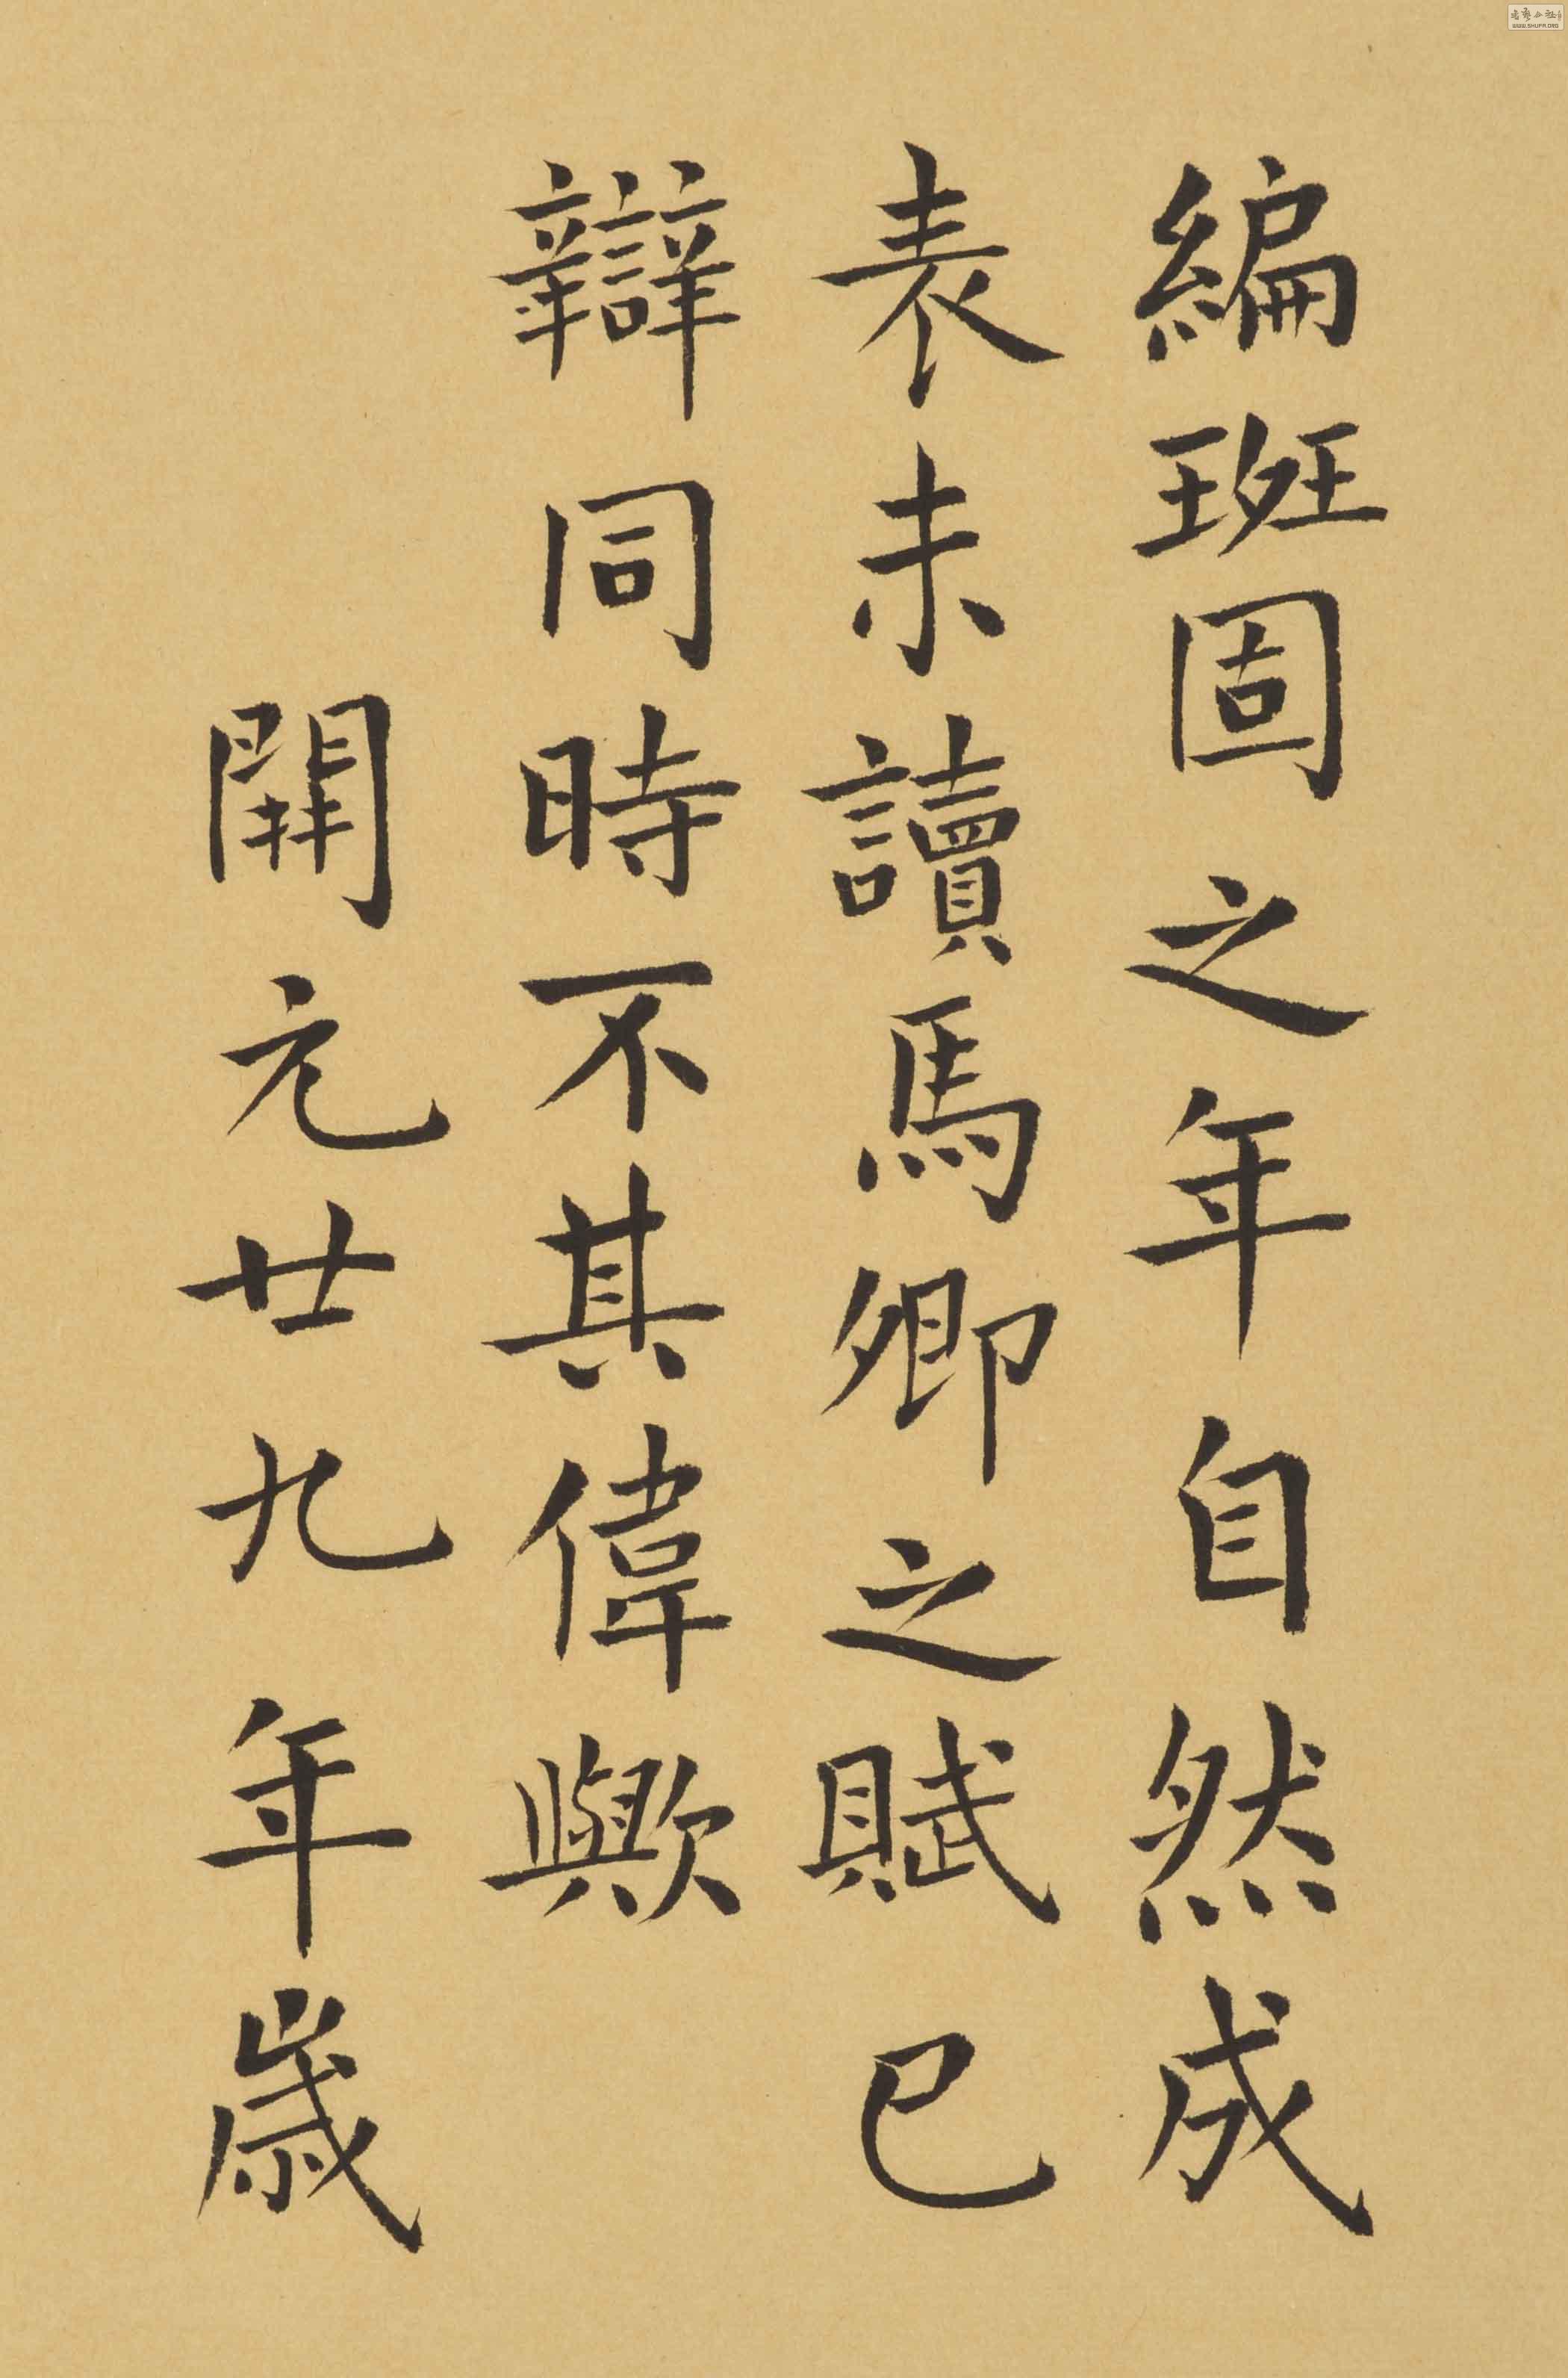 編班固之年自然成
表未讀馬卿之賦已
辯同時不其偉歟
開元廿九年歲
WWW.SHUFA.ORG